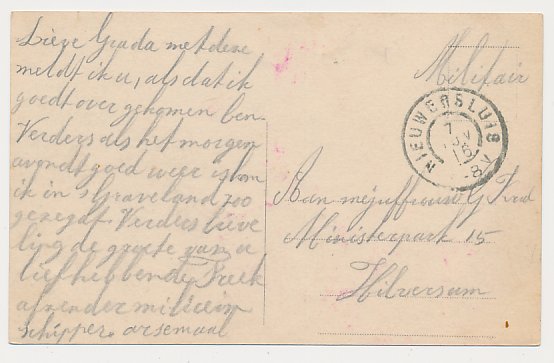 Lieve Grada met deze
meldt ik u, als dat ik
goedt over gekomen ben.
Verders als het morgen
avondt goed weer is kom
ik in 's Graveland zoo
gezegt. Verders lieve
ling de groete van u
lief hebbende Freek
afzender milicien
schipper arsenaal
Militair
NIEUWERSLUIS
7
16
8V
Aan mejuffrouw G
Ministerpark 15
Hilversum